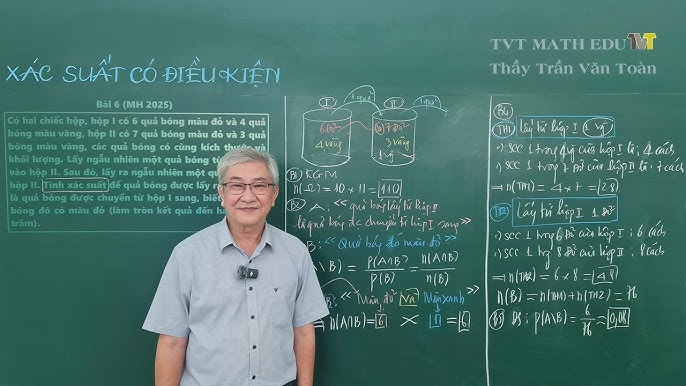 TVT MATH EDU TVT
Thầy Trần Văn Toàn
XÁC SUẤT CÓ ĐIỀU KIỆN
Bài 6 (MH 2025)
Có hai chiếc hộp, hộp I có 6 quả bóng màu đỏ và 4 quả
bóng màu vàng, hộp II có 7 quả bóng màu đỏ và 3 quả
bóng màu vàng, các quả bóng có cùng kích thước và
khối lượng. Lấy ngẫu nhiên một quả bóng từ
vào hộp II. Sau đó, lấy ra ngẫu nhiên một quả
hộp II. Tính xác suất để quả bóng được lấy r
là quả bóng được chuyển từ hộp I sang, biết
bóng đó có màu đỏ (làm tròn kết quả đến h
trăm).
I
II
1 quả
1 quả
6 đỏ
4 vàng
7 đỏ
3 vàng
B1 KGM
n(Ω) = 10 × 11 = 110
B2 A: "quả bóng lấy từ hộp II
là quả bóng đc chuyển từ hộp I sang"
B: "Quả bóng đó màu đỏ"
A\B) = P(A∩B)/P(B) = n(A∩B)/n(B)
B: "Màu đỏ và Màu xanh"
⇒ n(A∩B) = 6 × 1 = 6
B4
TH1 lấy từ hộp I 1 vg
SCC 1 trong 4 vg của hộp I là; 4 cách
SCC 1 trong 7 đỏ của hộp II là, 7 cách
⇒ n(TH1) = 4 × 7 = 28
TH2 Lấy từ hộp I 1 đỏ
SCC 1 trg 6 đỏ của hộp I : 6 cách
SCC 1 trg 8 đỏ của hộp II : 8 cách
⇒ n(TH2) = 6 × 8 = 48
n(B) = n(TH1) + n(TH2) = 76
B5 ĐS: P(A\B) = 6/76 ≈ 0,08